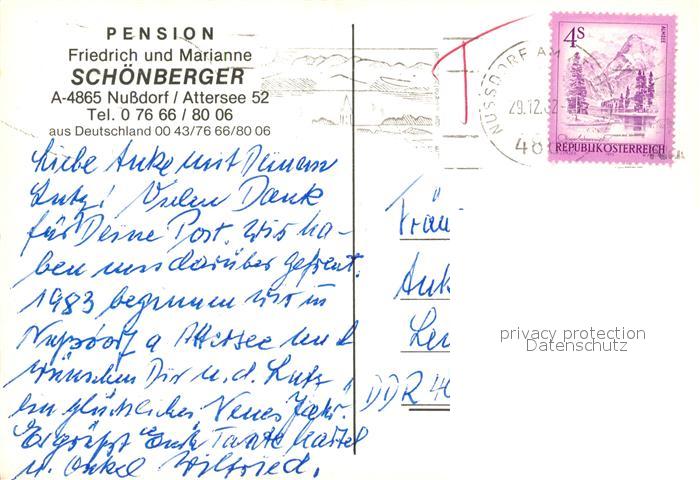 PENSION
Friedrich und Marianne
SCHÖNBERGER
A-4865 Nußdorf / Attersee 52
Tel. 0 76 66 / 80 06
aus Deutschland 00 43/76 66/80 06
Liebe Anke mit Deinem
Lutz! Vielen Dank
für Deine Post. Wir ha-
ben uns darüber gefreut.
1983 beginnen wir in
Nußdorf a Attersee und
wünschen Dir u. d. Lutz
ein glückliches Neues Jahr.
Es grüßt Euch Tante
u. Onkel Wilfried.
T
NUSSDORF AM
29.12.82
48
4S
ALMSEE
REPUBLIK ÖSTERREICH
Fräu
Ank
Le
DDR 40
privacy protection
Datenschutz